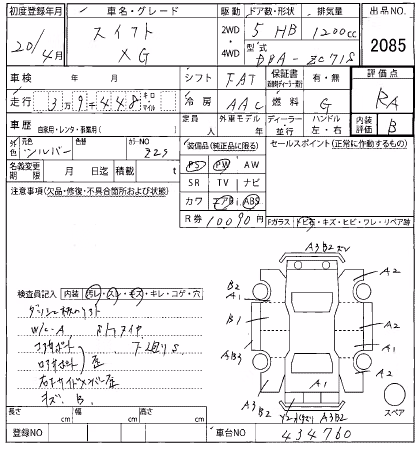 初度登録年月 車名・グレード 駆動 ドア数・形状 排気量 出品NO
20/4月 スイフト XG 2WD・4WD 5 HB 1200cc 2085
型式 DBA-ZC71S
車検 年 月 シフト FAT 保証書 有・無 評価点
走行 3万9千448 キロ マイル 冷房 AAC 燃料 G RA
車歴 自家用・レンタ・事業用( ) 定員 人 外車モデル 年 ディーラー 並行 ハンドル 左・右 内装評価 B
外色 元色 シルバー 色替 カラーNO Z2S 装備品(純正品に限る) セールスポイント(正常に作動するもの)
PS PW AW
名義変更期限 月 日 積載 t SR TV ナビ
注意事項(欠品・修復・不具合箇所および状態) カワ エアB ABS
R券 10090円 Fガラス トビ石・キズ・ヒビ・ワレ・リペア跡
A3 B2
検査員記入 内装 汚レ・スレ・キズ・キレ・コゲ・穴
B2 A1 A2
B1 A2 A1
W/C-A
AB3 A2
A1
右サイドメンバー
キズ、B
A3 B2 A3B2
スペア
長さ cm 幅 cm 高さ cm
登録NO 車台NO 434760